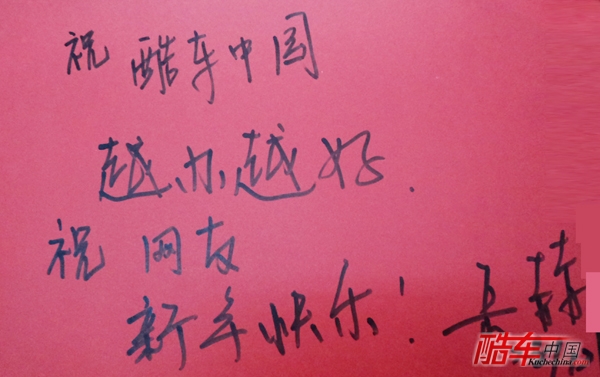 祝 酷车中国
越办越好.
祝 网友
新年快乐!
酷车中国
Kuchechina.com